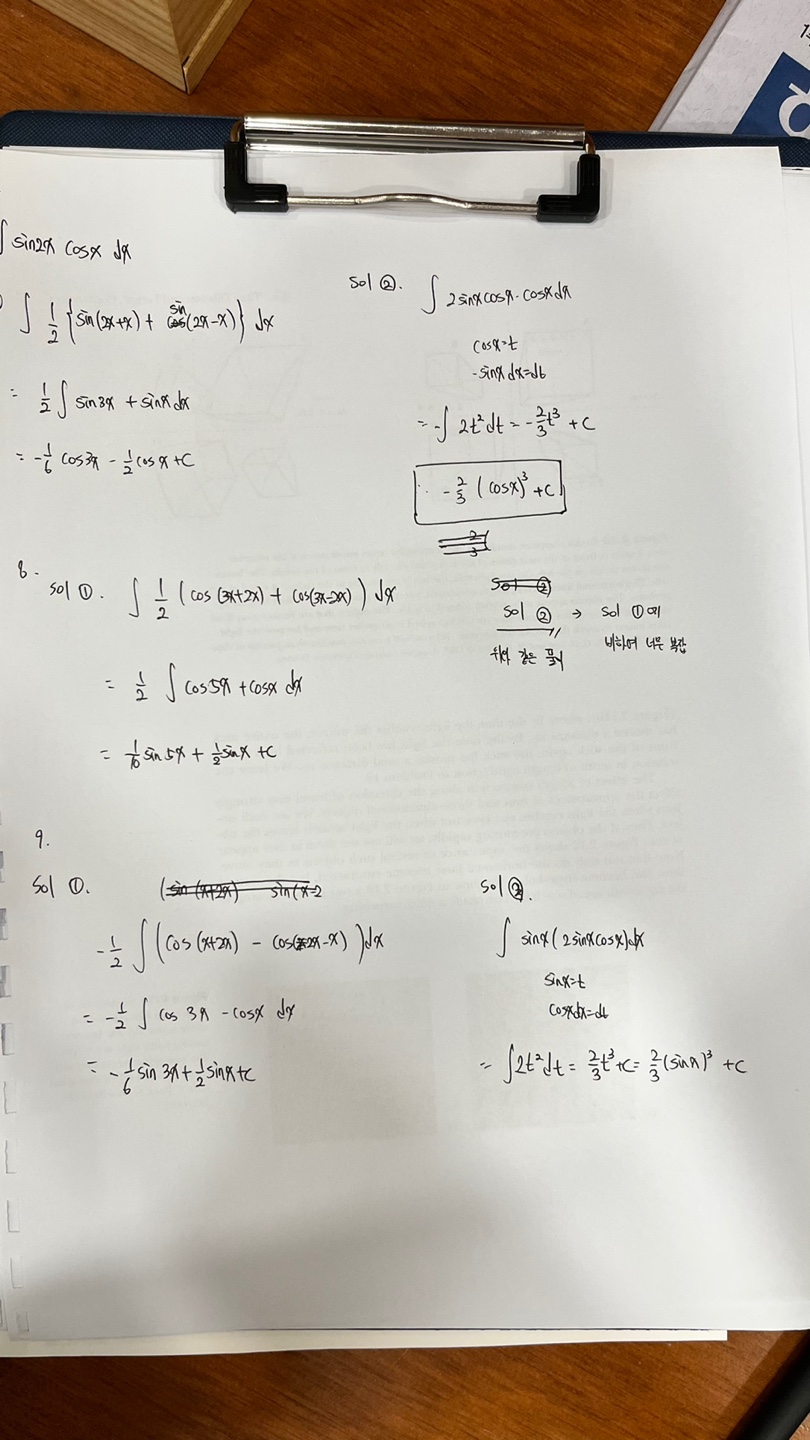 ∫ sin2x cosx dx
∫ 1/2 {sin(2x+x) + sin(2x-x)} dx
= 1/2 ∫ sin3x + sinx dx
= -1/6 cos3x - 1/2 cosx + C
Sol ②. ∫ 2sinxcosx·cosxdx
cosx=t
-sinxdx=dt
= -∫ 2t² dt = -2/3 t³ + C
∴ -2/3 (cosx)³ + C
8.
Sol ①. ∫ 1/2 (cos(3x+2x) + cos(3x-2x)) dx
= 1/2 ∫ cos5x + cosx dx
= 1/10 sin5x + 1/2 sinx + C
Sol ② → Sol ①에
비하여 너무 복잡
위와 같은 풀이
9.
Sol ①.
-1/2 ∫ (cos(x+2x) - cos(2x-x)) dx
= -1/2 ∫ cos3x - cosx dx
= -1/6 sin3x + 1/2 sinx + C
Sol ②.
∫ sinx(2sinxcosx)dx
sinx=t
cosxdx=dt
= ∫2t²dt = 2/3 t³ + C = 2/3 (sinx)³ + C